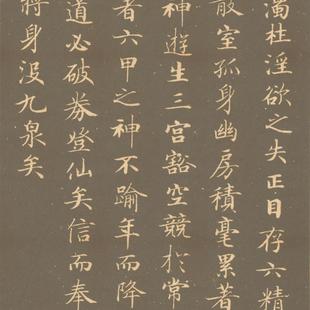 濁杜淫欲之失正目存六精
散室孤身幽房積毫累著
神遊生三宮豁空競於常
者六甲之神不踰年而降
道必破券登仙矣信而奉
將身没九泉矣